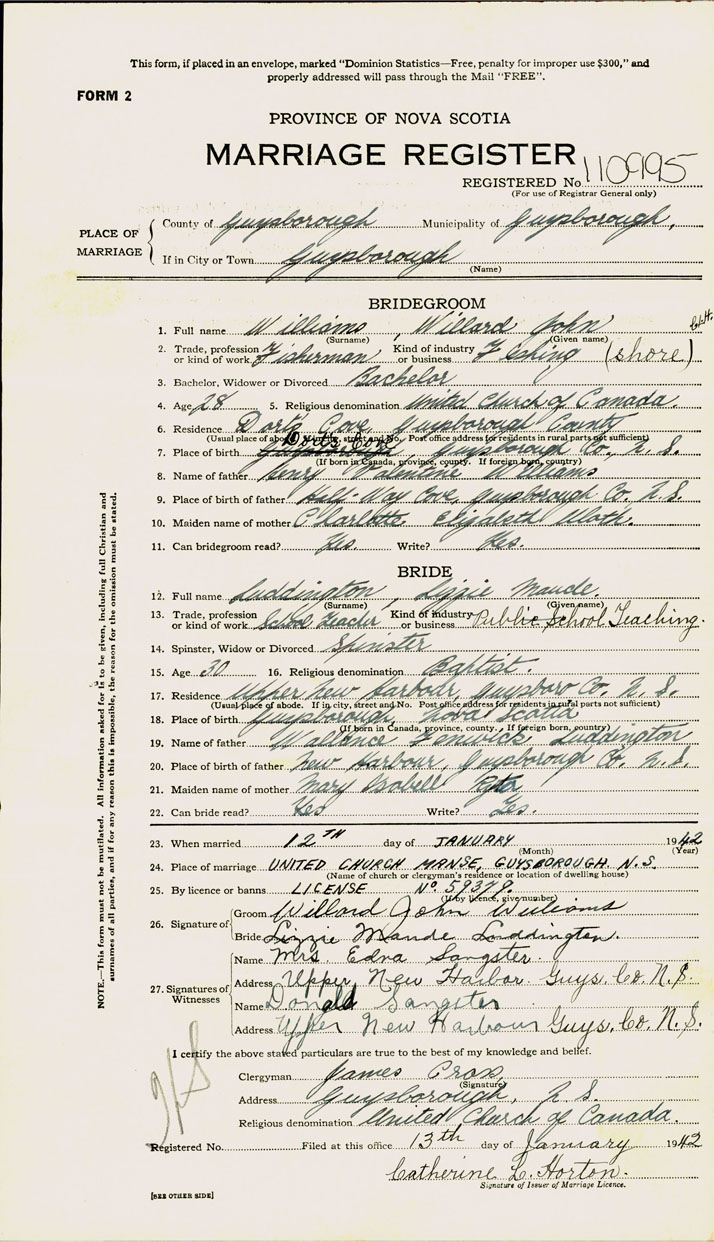 This form, if placed in an envelope, marked "Dominion Statistics—Free, penalty for improper use $300," and
properly addressed will pass through the Mail "FREE".
FORM 2
PROVINCE OF NOVA SCOTIA
MARRIAGE REGISTER
REGISTERED No. 110995
(For use of Registrar General only)
PLACE OF MARRIAGE
County of Guysborough Municipality of Guysborough,
If in City or Town Guysborough
(Name)
BRIDEGROOM
1. Full name Williams, Willard John
(Surname) (Given name)
2. Trade, profession or kind of work Fisherman Kind of industry or business Fishing (shore)
3. Bachelor, Widower or Divorced Bachelor
4. Age 28 5. Religious denomination United Church of Canada.
6. Residence Dorts Cove, Guysborough County
(Usual place of abode. If in city, street and No. Post office address for residents in rural parts not sufficient)
7. Place of birth Dorts Cove, Guysborough Co. N.S.
(If born in Canada, province, county. If foreign born, country)
8. Name of father Henry Valentine Williams
9. Place of birth of father Half-Way Cove, Guysborough Co. N.S.
10. Maiden name of mother Charlotte Elizabeth
11. Can bridegroom read? Yes. Write? Yes.
BRIDE
12. Full name Luddington, Lizzie Maude.
(Surname) (Given name)
13. Trade, profession or kind of work School Teacher Kind of industry or business Public School Teaching.
14. Spinster, Widow or Divorced Spinster
15. Age 30 16. Religious denomination Baptist.
17. Residence Upper New Harbour, Guysboro Co. N.S.
(Usual place of abode. If in city, street and No. Post office address for residents in rural parts not sufficient)
18. Place of birth Guysborough, Nova Scotia
(If born in Canada, province, county. If foreign born, country)
19. Name of father Luddington
20. Place of birth of father New Harbour, Guysborough Co. N.S.
21. Maiden name of mother Mary Isabell
22. Can bride read? Yes Write? Yes.
23. When married 12TH day of JANUARY 1942
(Month) (Year)
24. Place of marriage UNITED CHURCH MANSE, GUYSBOROUGH N.S.
(Name of church or clergyman's residence or location of dwelling house)
25. By licence or banns LICENSE No 59379.
(If by licence, give number)
26. Signature of
Groom Willard John Williams
Bride Lizzie Maude Luddington.
27. Signatures of Witnesses
Name Mrs. Edna Sangster.
Address Upper New Harbor Guys. Co N.S.
Name Donald Sangster
Address Upper New Harbour Guys. Co. N.S.
I certify the above stated particulars are true to the best of my knowledge and belief.
Clergyman James Cross
(Signature)
Address Guysborough, N.S.
Religious denomination United Church of Canada.
Registered No. Filed at this office 13th day of January 1942
Catherine L. Horton.
Signature of Issuer of Marriage Licence.
[SEE OTHER SIDE]
NOTE.—This form must not be mutilated. All information asked for is to be given, including full Christian and
surnames of all parties, and if for any reason this is impossible, the reason for the omission must be stated.